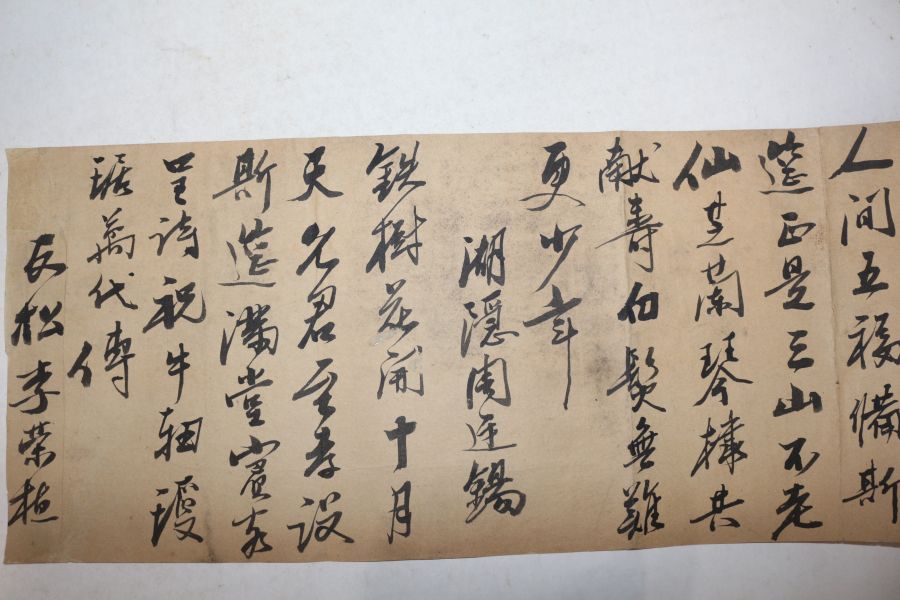 人间五福備斯
筵正是三山不老
仙芝蘭琴棣共
献壽白鬢無難
更少年
湖隠周廷錫
鉄樹花開十月
天允君至孝設
斯筵滿堂賓客
呈詩祝牛
琚萬代傳
友松李榮植